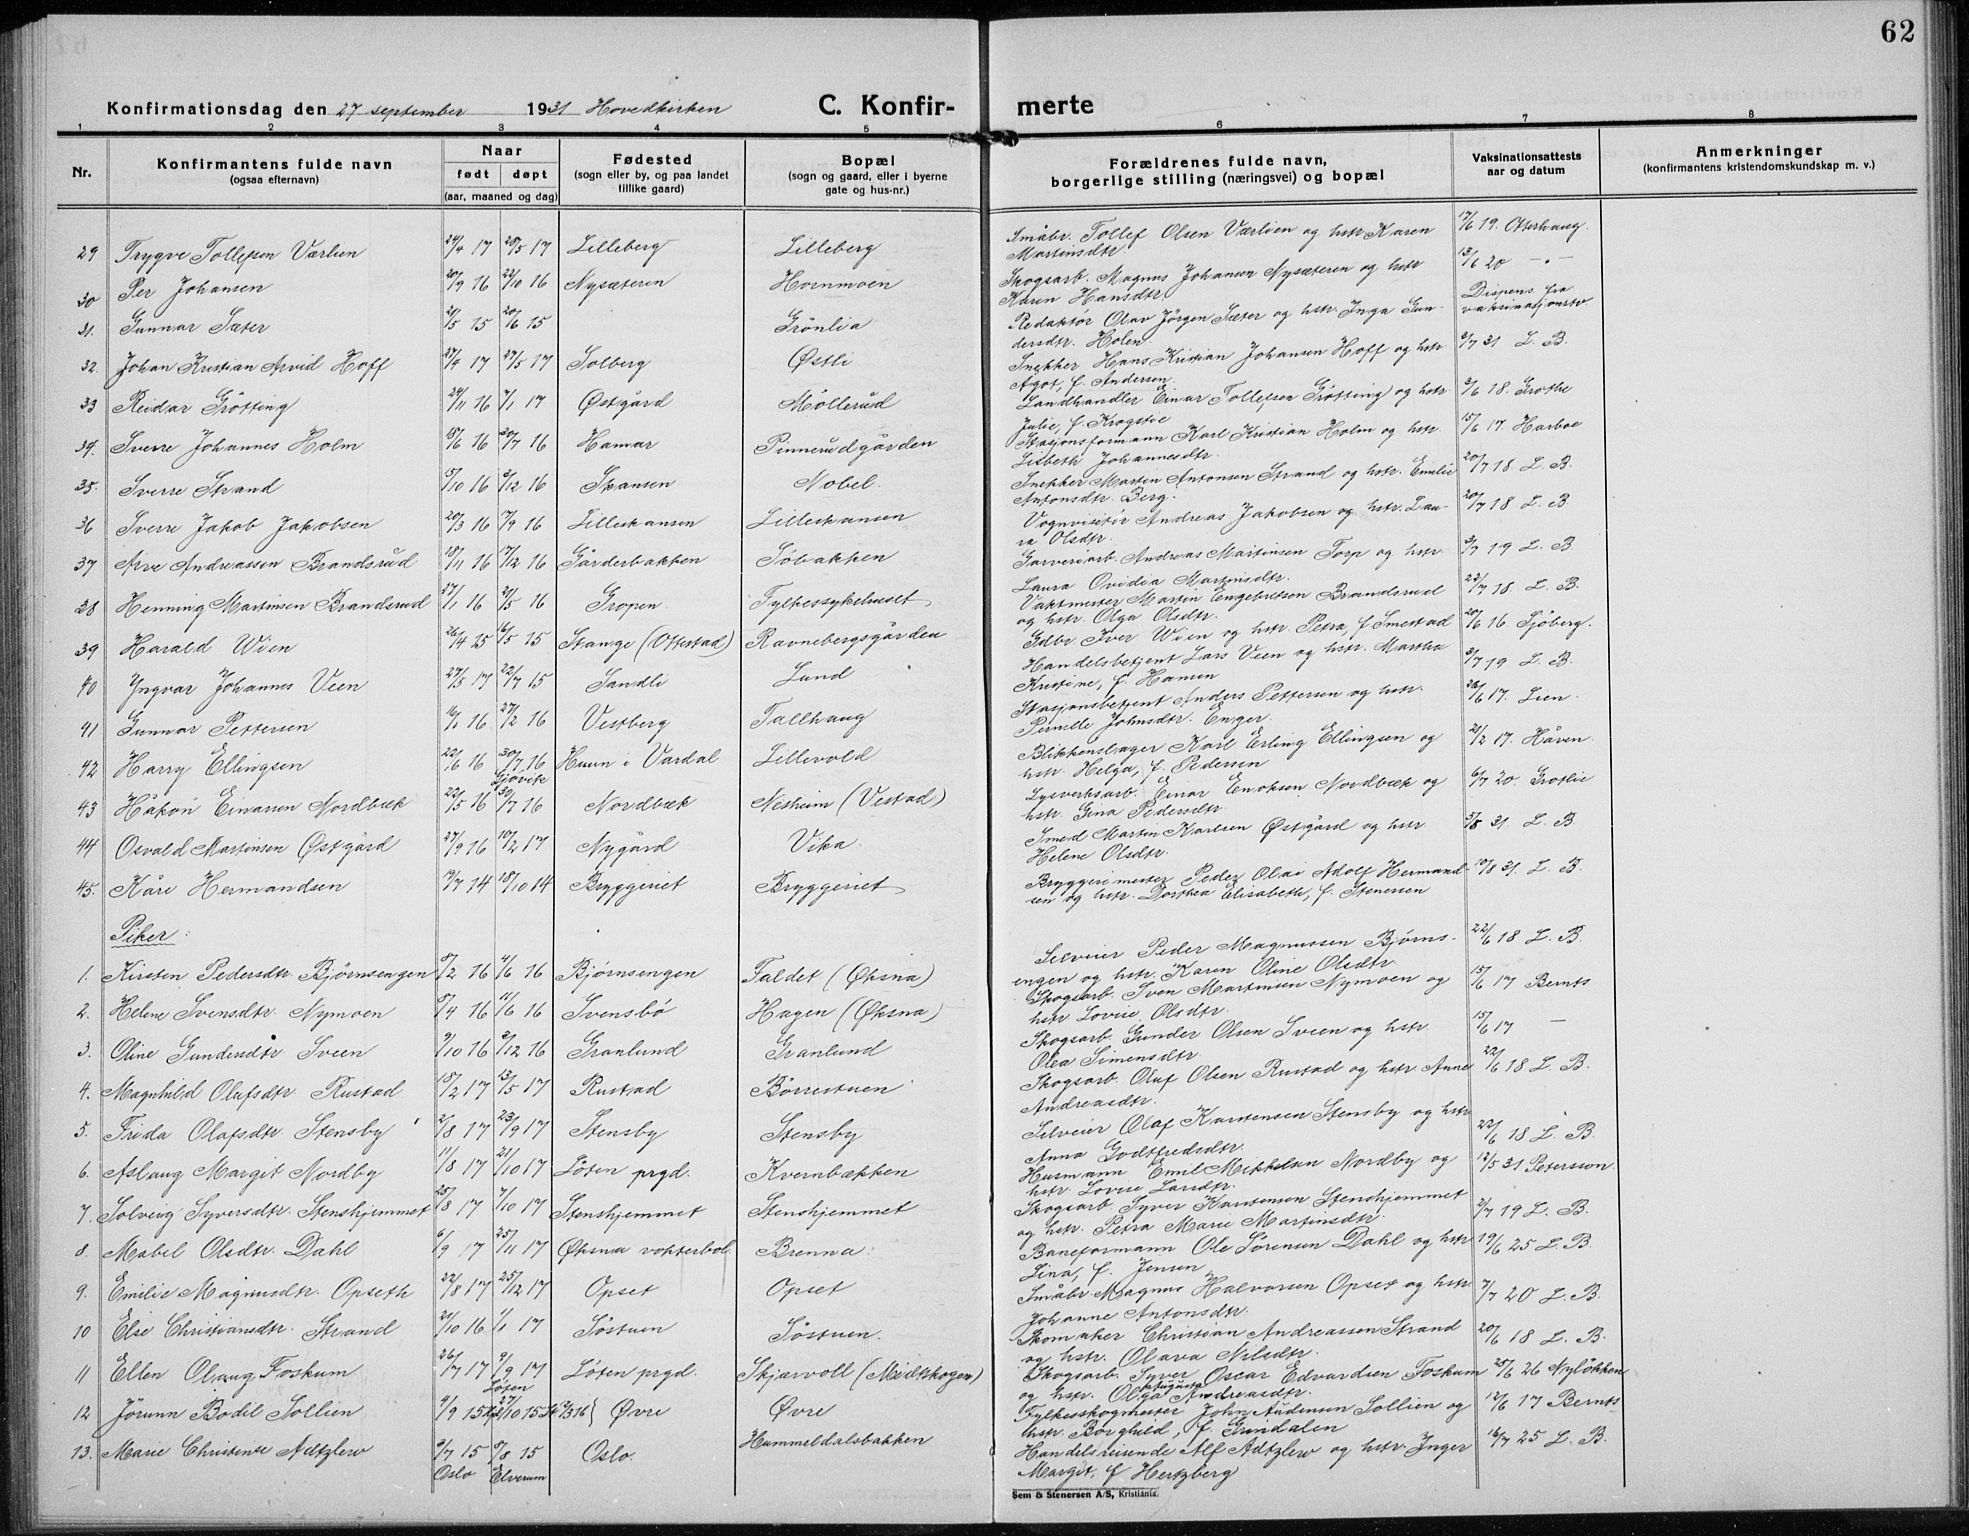 62
Konfirmationsdag den 27 september 1931 Hovedkirken C. Konfir- merte
1 2 3 4 5 6 7 8
Nr. Konfirmantens fulde navn Naar Fødested Bopæl Forældrenes fulde navn, Vaksinationsattests Anmerkninger
(ogsaa efternavn) født døpt (sogn eller by, og paa landet (sogn og gaard, eller i byerne borgerlige stilling (næringsvei) og bopæl aar og datum (konfirmantens kristendomskundskap m. v.)
tillike gaard) gate og hus-nr.)
(aar, maaned og dag)
29 Trygve Tollefsen Værlien 24/4 17 28/5 17 Lilleberg Lilleberg Småbr. Tollef Olsen Værlien og hstr Karen 17/6 19. Osterhaug.
Martinsdtr
30 Per Johansen 20/9 16 22/10 16 Nysæteren Hornmoen Skogsarb. Magnus Johansen Nysæteren og hstr 13/6 20 - " -
Karen Hansdtr.
31. Gunnar Sæter 21/5 15 20/6 15 Grönlia Redaktör Olav Jörgen Sæter og hstr. Inga Gun- Dispens. fra
dersdtr. Holen.
32. Johan Kristian Arvid Hoff 27/4 17 27/5 17 Solberg Østli Snekker Hans Kristian Johansen Hoff og hstr 3/7 31 L. B.
Agot, f. Andersen
33 Reidar Grötting 24/11 16 7/1 17 Østgård Möllerud Landhandler Einar Tollefsen Grötting og hstr 3/6 18. Grothe
Julie, f. Kragstie
34. Sverre Johannes Holm 18/6 16 30/7 16 Hamar Pinnerudgården Stasjonsformann Karl Kristian Holm og hstr 15/6 17. Harboe
Lisbeth Johannesdtr.
35. Sverre Strand 5/10 16 3/12 16 Skansen Nobel. Snekker Martin Antonsen Strand og hstr. Emilie 20/7 18. L. B.
Antonsdtr. Berg.
36 Sverre Jakob Jakobsen 20/3 16 7/9 16 Lilleskansen Lilleskansen Vognvisitör Andreas Jakobsen og hstr. Lau- 20/7 18 L. B
ra Olsdtr.
37 Arve Andreassen Brandsrud 18/11 16 17/12 16 Gårderbakken Söbakken Garveriarb. Andreas Martinsen Torp og hstr. 3/7 19 L. B
Laura Ovidia Martinsdtr.
38 Henning Martinsen Brandsrud 27/1 16 21/5 16 Gropen. Fylkessykehuset Vaktmester Martin Engebretsen Brandsrud 22/7 18. L. B.
og hstr. Olga Olsdtr.
39 Harald Wien 26/4 15 16/5 15 Stange (Ottestad) Ravnebergsgården Gdbr Iver Wien og hstr. Petra, f Smestad 20/6 16. Sjöberg.
40 Yngvar Johannes Veen 27/5 17 22/7 15 Sandli Lund Handelsbetjent Lars Veen og hstr. Martha 3/7 19 L. B.
Kristine, f. Hansen
41 Gunnar Pettersen 16/1 16 27/2 16 Vestberg Tallhaug Stasjonsbetjent Anders Pettersen og hstr. 26/6 17. Lien.
Pernille Johnsdtr. Enger.
42 Harry Ellingsen 22/6 16 30/7 16 Hunn i Vardal Lillevold Blikkenslager Karl Erling Ellingsen og 21/2 17. Håven.
Gjøvik hstr. Helga, f. Pedersen
43 Håkon Einarsen Nordbæk 22/5 16 30/7 16 Nordbæk Nesheim (Vestad) Lysverksarb. Einar Enoksen Nordbæk og 6/7 20. Grothe
hstr. Gina Pedersdtr.
44 Osvald Martinsen Østgård 27/9 16 10/2 17 Nygård Vika. Smed Martin Karlsen Østgård og hstr. 3/8 31. L. B.
Helene Olsdtr.
45. Kåre Hermandsen 19/7 14 18/10 14 Bryggeriet Bryggeriet Bryggerimester Peder Olai Adolf Hermand- 10/8 31. L. B.
sen og hstr. Dorthea Elisabeth, f. Stenersen
Piker:
1. Kirsten Pedersdtr. Bjørnsengen 8/2 16 4/6 16 Bjørnsengen Faldet (Øksna) Selveier Peder Magnussen Bjørns- 22/6 18 L. B
engen og hstr. Karen Oline Olsdtr.
2. Helene Svensdtr. Nymoen 8/4 16 11/6 16 Svensbö Hagen (Øksna) Skogsarb. Sven Martinsen Nymoen og 15/6 17 Bernts
hstr Lovise Olsdtr.
3. Oline Gundersdtr Sveen 9/10 16 3/12 16 Granlund Granlund Skogsarb. Gunder Olsen Sveen og hstr. 15/6 17 —
Olea Simensdtr
4. Magnhild Olafsdtr Rustad 18/2 17 13/5 17 Rustad Börrestuen Skogsarb. Oluf Olsen Rustad og hstr Anne 22/6 18 L. B.
Andreasdtr.
5. Frida Olafsdtr. Stensby 2/8 17 23/9 17 Stensby Stensby Selveier Olaf Karstensen Stensby og hstr 22/6 18 L. B.
Anna Godtfredsdtr.
6. Aslaug Margit Nordby 11/8 17 21/10 17 Löten prgd. Kvernbækken Husmann Emil Mikkelsen Nordby og 12/5 31 Petersson
hstr. Lovise Larsdtr.
7. Solveig Syversdtr. Stenshjemmet 25/8 17 7/10 17 Stenshjemmet Stenshjemmet Skogsarb Syver Karstensen Stenshjemmet 2/7 19 L. B.
og hstr. Petra Marie Martinsdtr.
8. Mabel Olsdtr. Dahl 6/9 17 25/11 17 Øksna vokterbol. Brenna. Baneformann Ole Sörensen Dahl og hstr 19/6 25 L. B.
Lina, f. Jensen
9. Emilie Magnusdtr. Opseth 22/8 17 25/12 17 Opset Opset Småbr. Magnus Halvorsen Opset og hstr 7/7 20 L. B.
Johanne Antonsdtr.
10 Else Christiansdtr. Strand 21/10 16 1/1 17 Söstuen Söstuen. Skomaker Christian Andreassen Strand 20/6 18 L. B.
og hstr. Olava Nilsdtr.
11 Ellen Olaug Foskum 26/7 17 9/9 17 Löten prgd. Skjærvoll (Midtskogen) Skogsarb. Syver Oscar Edvardsen Foskum 25/6 26 Nylökken
Löten og hstr. Olga Augusta Andreasdtr.
12 Jörunn Bodil Sollien 4/9 15 27/10 15 Øvre Øvre Fylkesskogmester John Andersen Sollien og 12/6 17 Bernts
hstr. Borghild, f. Grindalen
13. Marie Christense Adtzlew 3/7 15 8/8 15 Oslo. Hummeldalsbakken Handelsreisende Alf Adtzlew og hstr. Inger 16/7 25 L. B.
Oslo Elverum Margit, f Hertzberg
Sem & Stenersen A/S, Kristiania.